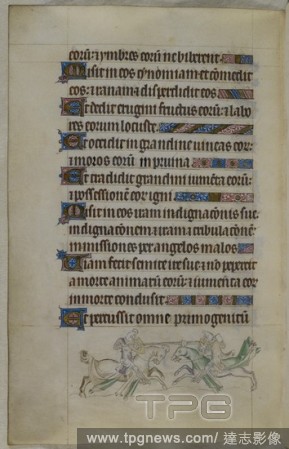 eorū: ⁊ ymbres eorū ne biberent
Misit in eos cynomiam et comedit
eos: ⁊ ranam ⁊ disperdidit eos
Et dedit erugini fructus eorū: ⁊ labo
res eorum locuste
Et occidit in grandine vineas eor:
⁊ moros eorū in pruina
Et tradidit grandini iumēta eorū:
⁊ possessionē eor igni
Misit in eos iram indignacōnis sue
indignacōnem ⁊ iram ⁊ tribulacōnē
inmissiones per angelos malos
Uiam fecit semite ire sue ⁊ nō pepercit
a morte animarū eorū: ⁊ iumenta eor
in morte conclusit
Et percussit omne primogenitū
TPG
www.tpgnews.com/達志影像